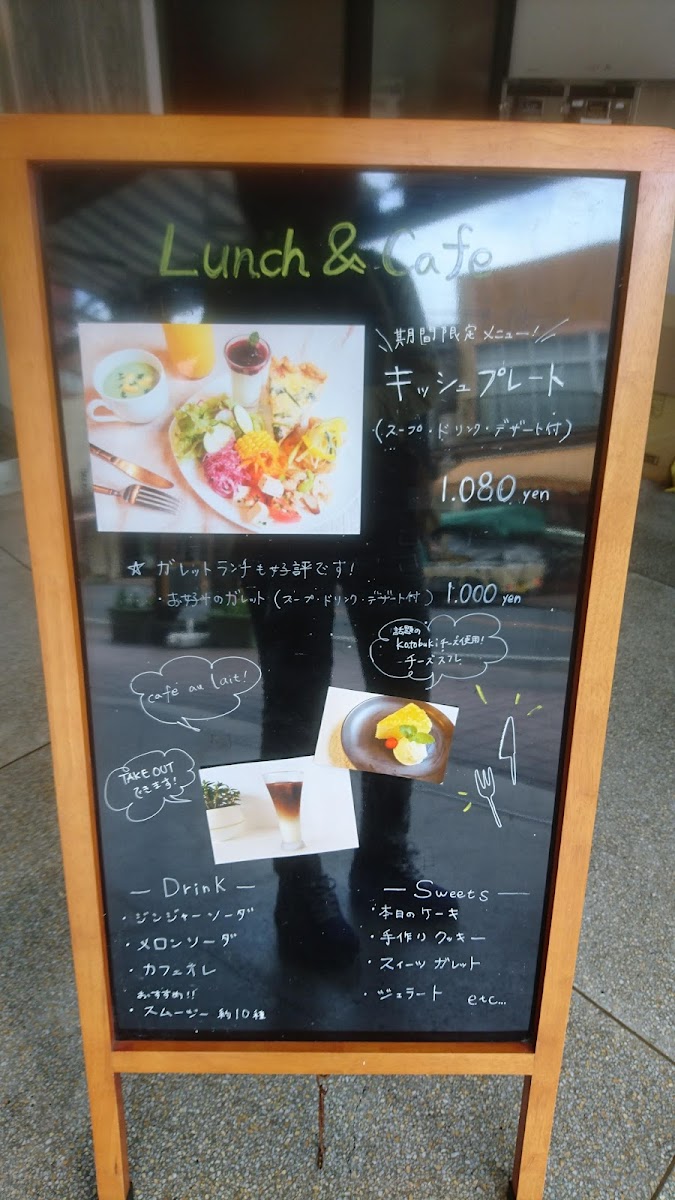 Lunch & Cafe
期間限定メニュー!
キッシュプレート
(スープ・ドリンク・デザート付)
1.080 yen
☆ ガレットランチも好評です!
・お好みのガレット (スープ・ドリンク・デザート付) 1.000 yen
話題の
Kotobukiチーズ使用!
チーズスフレ
café au lait!
TAKE OUT
できます!
— Drink —
・ジンジャーソーダ
・メロンソーダ
・カフェオレ
おすすめ!!
・スムージー 約10種
— Sweets —
・本日のケーキ
・手作りクッキー
・スイーツガレット
・ジェラート etc...